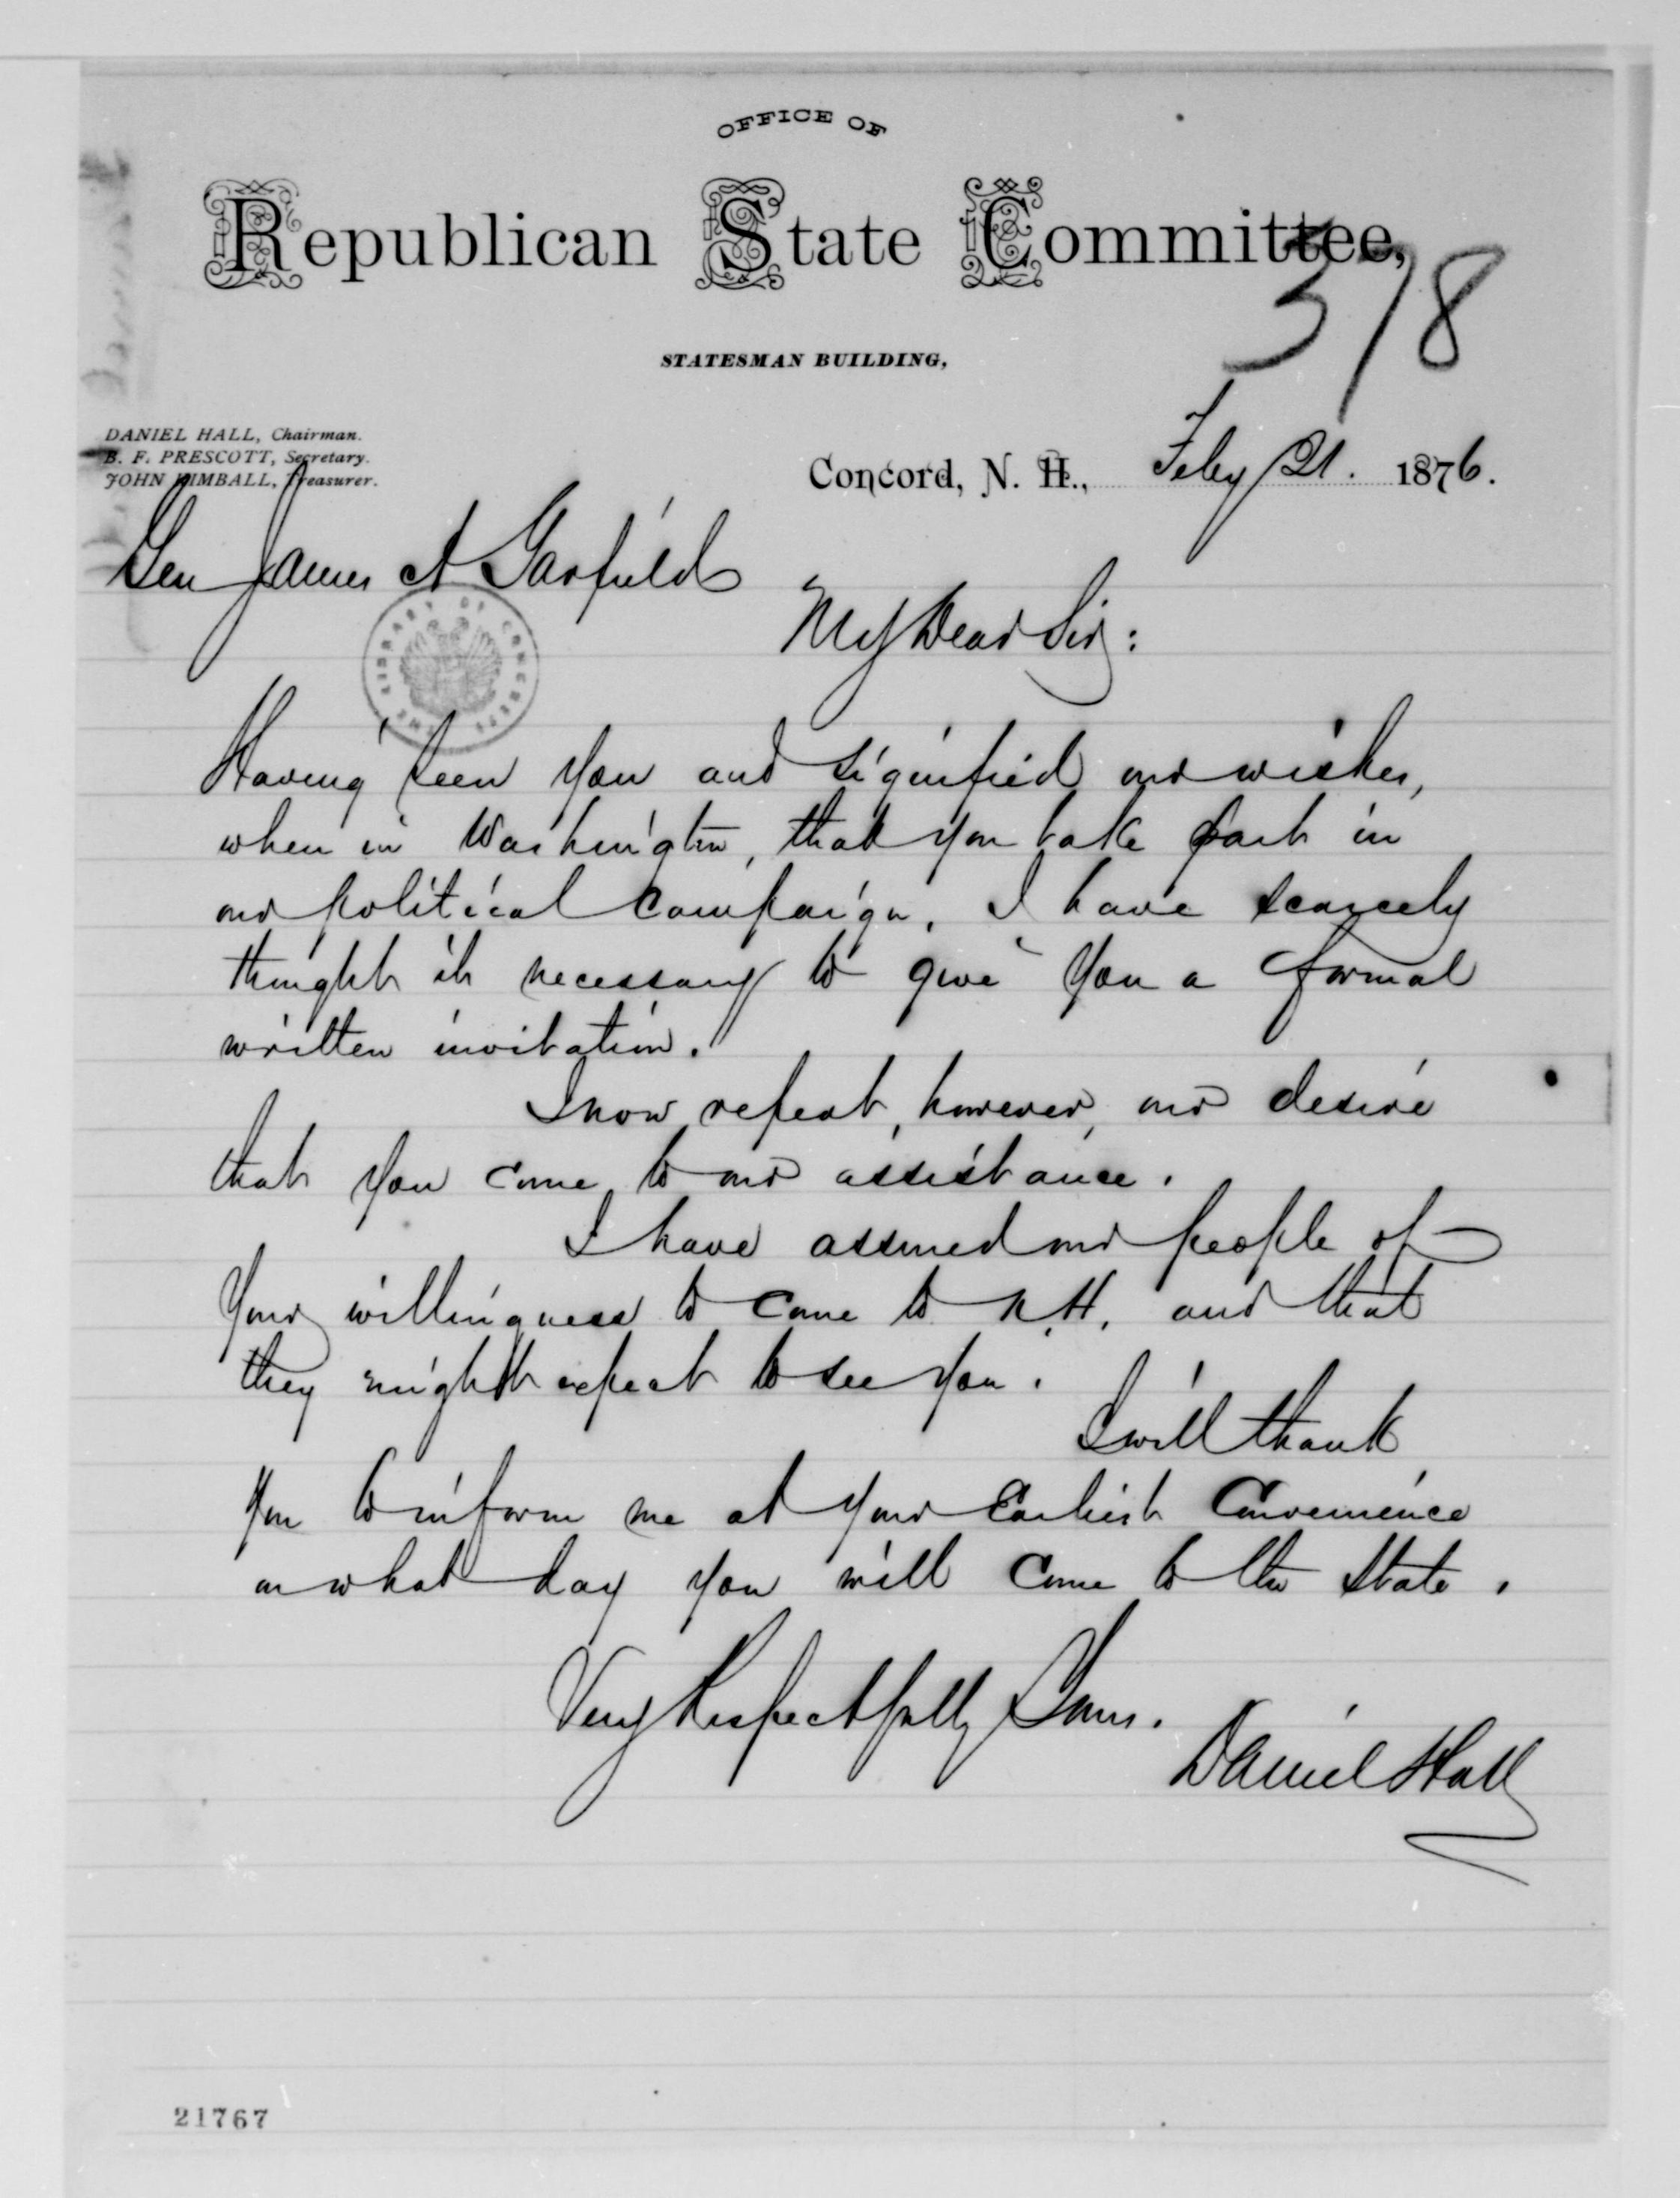 OFFICE OF
Republican State Committee,
378
STATESMAN BUILDING,
DANIEL HALL, Chairman.
B. F. PRESCOTT, Secretary.
JOHN KIMBALL, Treasurer.
Concord, N. H., Feby 21. 1876.
Gen James A Garfield
My Dear Sir:
THE LIBRARY OF CONGRESS
Having seen you and signified our wishes,
when in Washington, that you take part in
our political campaign, I have scarcely
thought it necessary to give you a formal
written invitation.
I now repeat, however, our desire
that you come to our assistance.
I have assured our people of
your willingness to come to N.H. and that
they might expect to see you.
I will thank
you to inform me at your Earliest Convenience
on what day you will come to the State.
Very Respectfully Yours.
Daniel Hall
21767